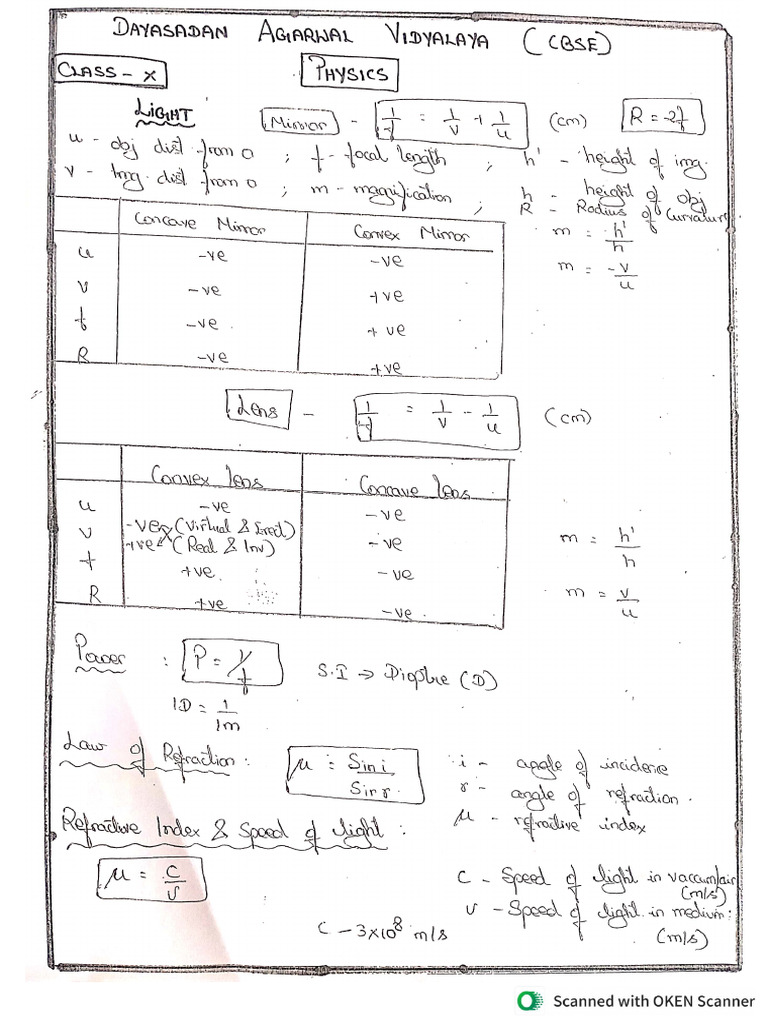 DAYASADAN AGARWAL VIDYALAYA (CBSE)
CLASS - X
PHYSICS
LIGHT
Mirror - 1/f = 1/v + 1/u (cm) R = 2f
u - obj dist from O ; f - focal length ; h' - height of img.
v - Img. dist from O ; m - magnification ; h - height of obj
R - Radius of Curvature
Concave Mirror Convex Mirror
m = h'/h
u -ve -ve
m = -v/u
v -ve +ve
f -ve +ve
R -ve +ve
Lens - 1/f = 1/v - 1/u (cm)
Convex Lens Concave Lens
u -ve -ve
v -ve (Virtual & Erect) -ve
+ve (Real & Inv)
m = h'/h
f +ve -ve
m = v/u
R +ve -ve
Power : P = 1/f S.I → Dioptre (D)
1D = 1/1m
Law of Refraction : μ = Sin i/Sin r i - angle of incidence
r - angle of refraction.
μ - refractive index
Refractive Index & Speed of light :
μ = c/v
C - Speed of light in vaccum/air (m/s)
v - Speed of light in medium: (m/s)
C - 3×10⁸ m/s
Scanned with OKEN Scanner